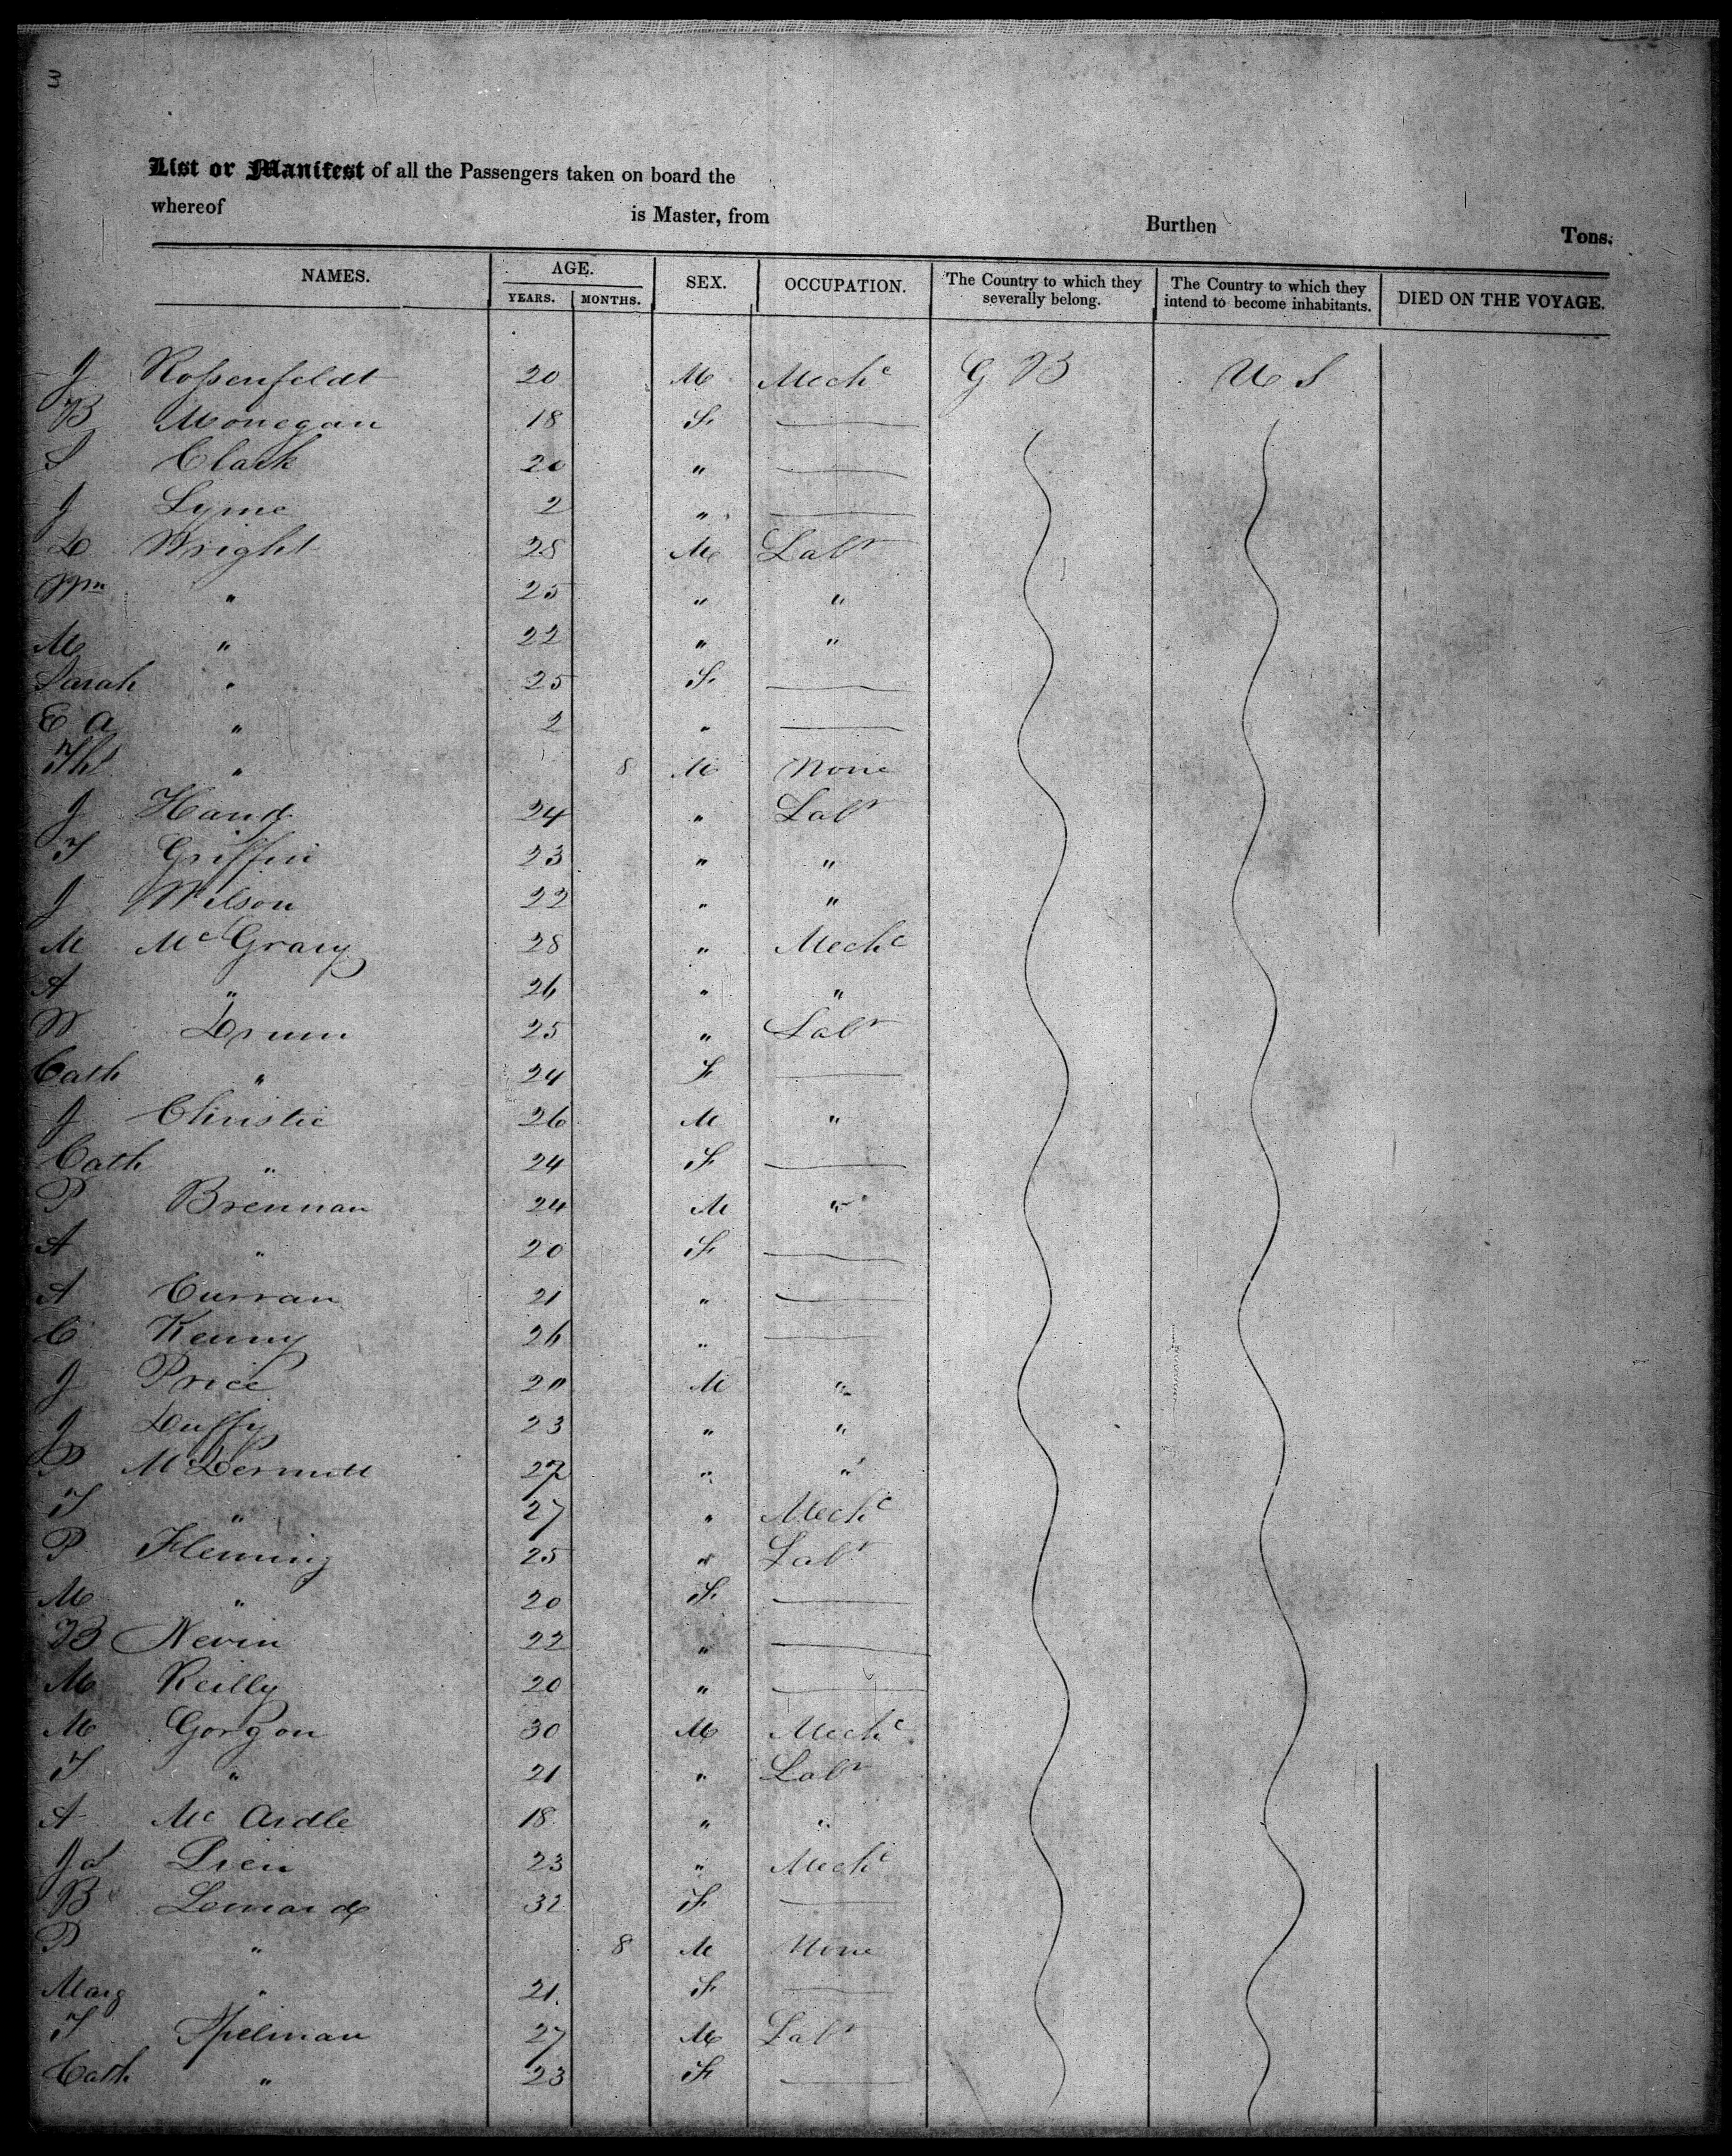 3
List or Manifest of all the Passengers taken on board the
whereof is Master, from Burthen Tons.
NAMES. AGE. YEARS. MONTHS. SEX. OCCUPATION. The Country to which they severally belong. The Country to which they intend to become inhabitants. DIED ON THE VOYAGE.
J Rossenfeldt 20 M Mechc G B U S
B Monegan 18 F
S Clark 20 "
J Lyme 2 "
D Wright 28 M Labr
Wm " 25 " "
M " 22 " "
Sarah " 25 F
E A " 2 "
Ths " 8 M None
J Hand 24 " Labr
T Griffin 23 " "
J Wilson 22 " "
M McGrary 28 " Mechc
A " 26 " "
W Drum 25 " Labr
Cath " 24 F
J Christie 26 M "
Cath " 24 F
P Brennan 24 M "
A " 20 F
A Curran 21 "
C Kenny 26 "
J Price 20 M "
J Duffy 23 " "
P McDermott 27 " "
T " 27 " Mechc
P Fleming 25 " Labr
M " 20 F
B Nevin 22 "
M Reilly 20 "
M Gorgon 30 M Mechc
T " 21 " Labr
A Mc Ardle 18 " "
Jas 23 " Mechc
B Lenard 32 F
P " 8 M None
Marg " 21 F
T Spelman 27 M Labr
Cath " 23 F